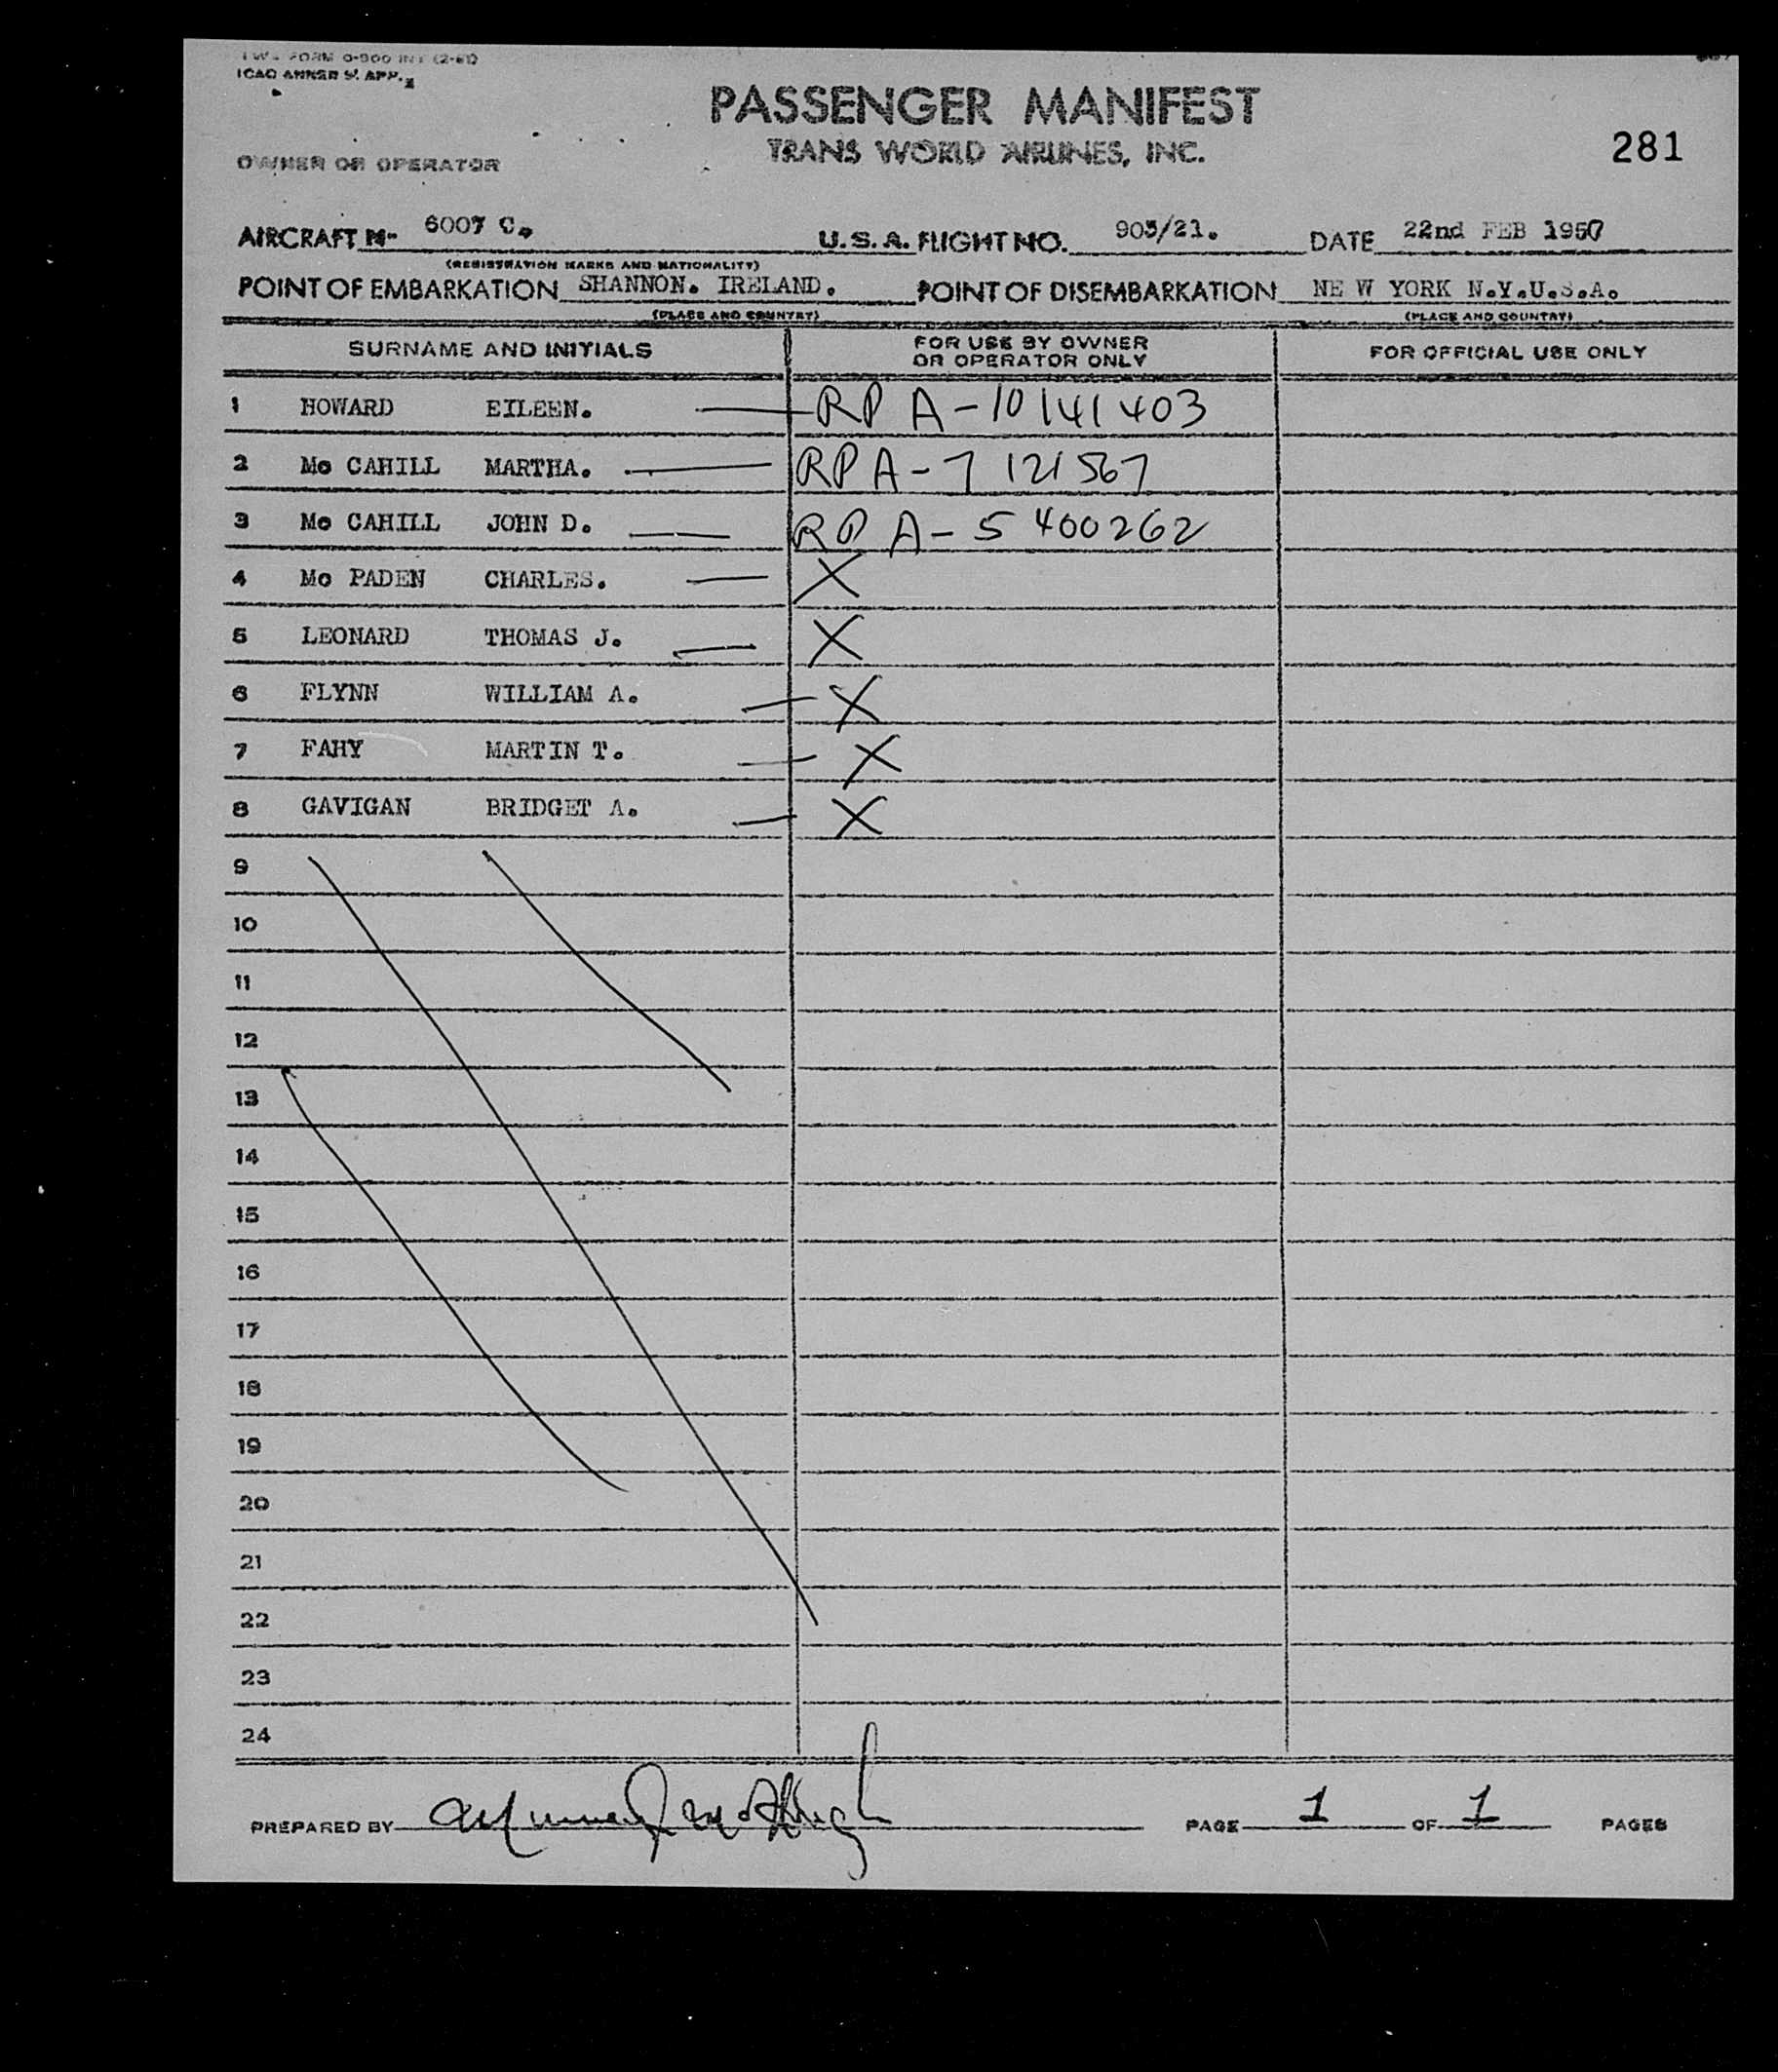 ICAO ANNEX 9. APP. 2
PASSENGER MANIFEST
TRANS WORLD AIRLINES, INC.
281
OWNER OR OPERATOR
AIRCRAFT N- 6007 C. U.S.A. FLIGHT NO. 903/21. DATE 22nd FEB 1957
(REGISTRATION MARKS AND NATIONALITY)
POINT OF EMBARKATION SHANNON. IRELAND. POINT OF DISEMBARKATION NE W YORK N.Y.U.S.A.
(PLACE AND COUNTRY) (PLACE AND COUNTRY)
SURNAME AND INITIALS FOR USE BY OWNER OR OPERATOR ONLY FOR OFFICIAL USE ONLY
1 HOWARD EILEEN. RP A-10141403
2 Mc CAHILL MARTHA. RP A-7 121567
3 Mc CAHILL JOHN D. RP A-5 400262
4 Mc PADEN CHARLES. X
5 LEONARD THOMAS J. X
6 FLYNN WILLIAM A. X
7 FAHY MARTIN T. X
8 GAVIGAN BRIDGET A. X
9
10
11
12
13
14
15
16
17
18
19
20
21
22
23
24
PREPARED BY PAGE 1 OF 1 PAGES